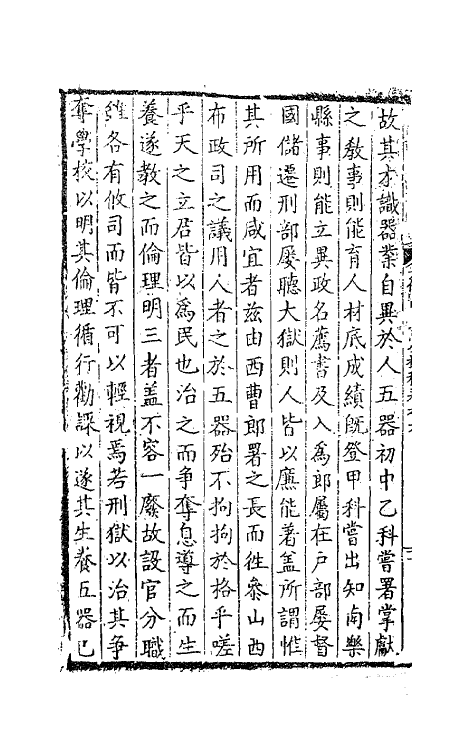 故其才識器業自異於人五器初中乙科嘗署掌獻
之教事則能育人材底成績旣登甲科嘗出知南樂
縣事則能立異政名薦書及入為郎屬在戶部屡督
國儲遷刑部屡聽大獄則人皆以廉能著盖所謂惟
其所用而咸宜者兹由西曹郎署之長而徃叅山西
布政司之議用人者之於五器殆不拘拘於格乎嗟
乎天之立君皆以為民也治之而争奪息導之而生
養遂教之而倫理明三者盖不容一廢故設官分職
雖各有攸司而皆不可以輕視焉若刑獄以治其争
奪學校以明其倫理循行勸課以遂其生養五器已